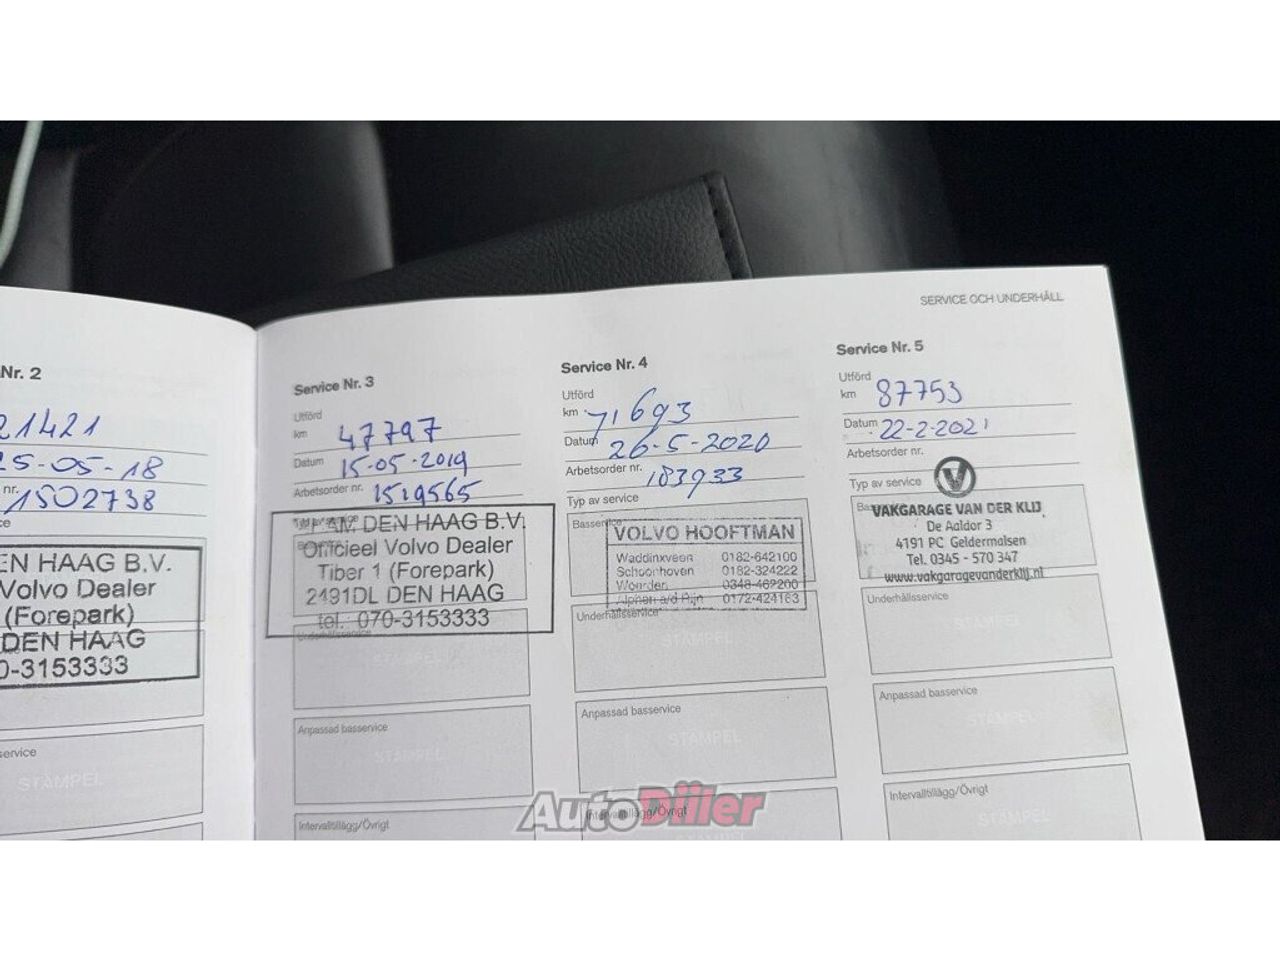 SERVICE OCH UNDERHÅLL
Nr. 2
21421
25-05-18
nr. 1502738
EN HAAG B.V.
Volvo Dealer
(Forepark)
DEN HAAG
0-3153333
service
STÄMPEL
Service Nr. 3
Utförd
km 47797
Datum 15-05-2019
Arbetsorder nr. 1519565
AM DEN HAAG B.V.
Officieel Volvo Dealer
Tiber 1 (Forepark)
2491DL DEN HAAG
tel.: 070-3153333
Underhållsservice
STÄMPEL
Anpassad basservice
STÄMPEL
Intervalltillägg/Övrigt
Service Nr. 4
Utförd
km 71693
Datum 26-5-2020
Arbetsorder nr. 183933
Typ av service
Basservice
VOLVO HOOFTMAN
Waddinxveen 0182-642100
Schoonhoven 0182-324222
Woerden 0348-462200
Alphen a/d Rijn 0172-424163
Underhållsservice
STÄMPEL
Anpassad basservice
STÄMPEL
Intervalltillägg/Övrigt
STÄMPEL
Service Nr. 5
Utförd
km 87753
Datum 22-2-2021
Arbetsorder nr.
Typ av service
V
VAKGARAGE VAN DER KLIJ
De Aaldor 3
4191 PC Geldermalsen
Tel. 0345 - 570 347
www.vakgaragevanderklij.nl
Underhållsservice
STÄMPEL
Anpassad basservice
STÄMPEL
Intervalltillägg/Övrigt
STÄMPEL
AutoDiler